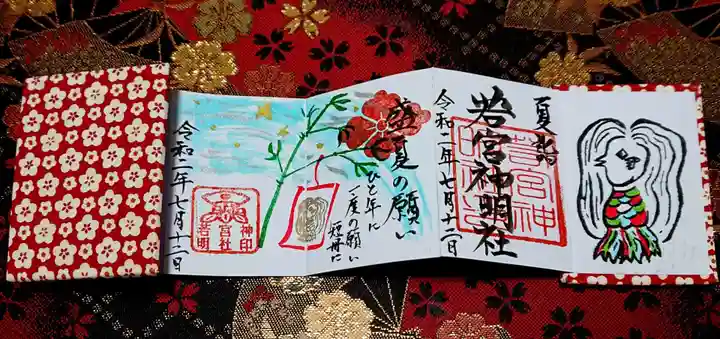 夏詣
若宮神明社
令和二年七月十二日
盛夏の願い
ひと年に
一度の願い
短冊に
神印
宮社
若明
令和二年七月十二日